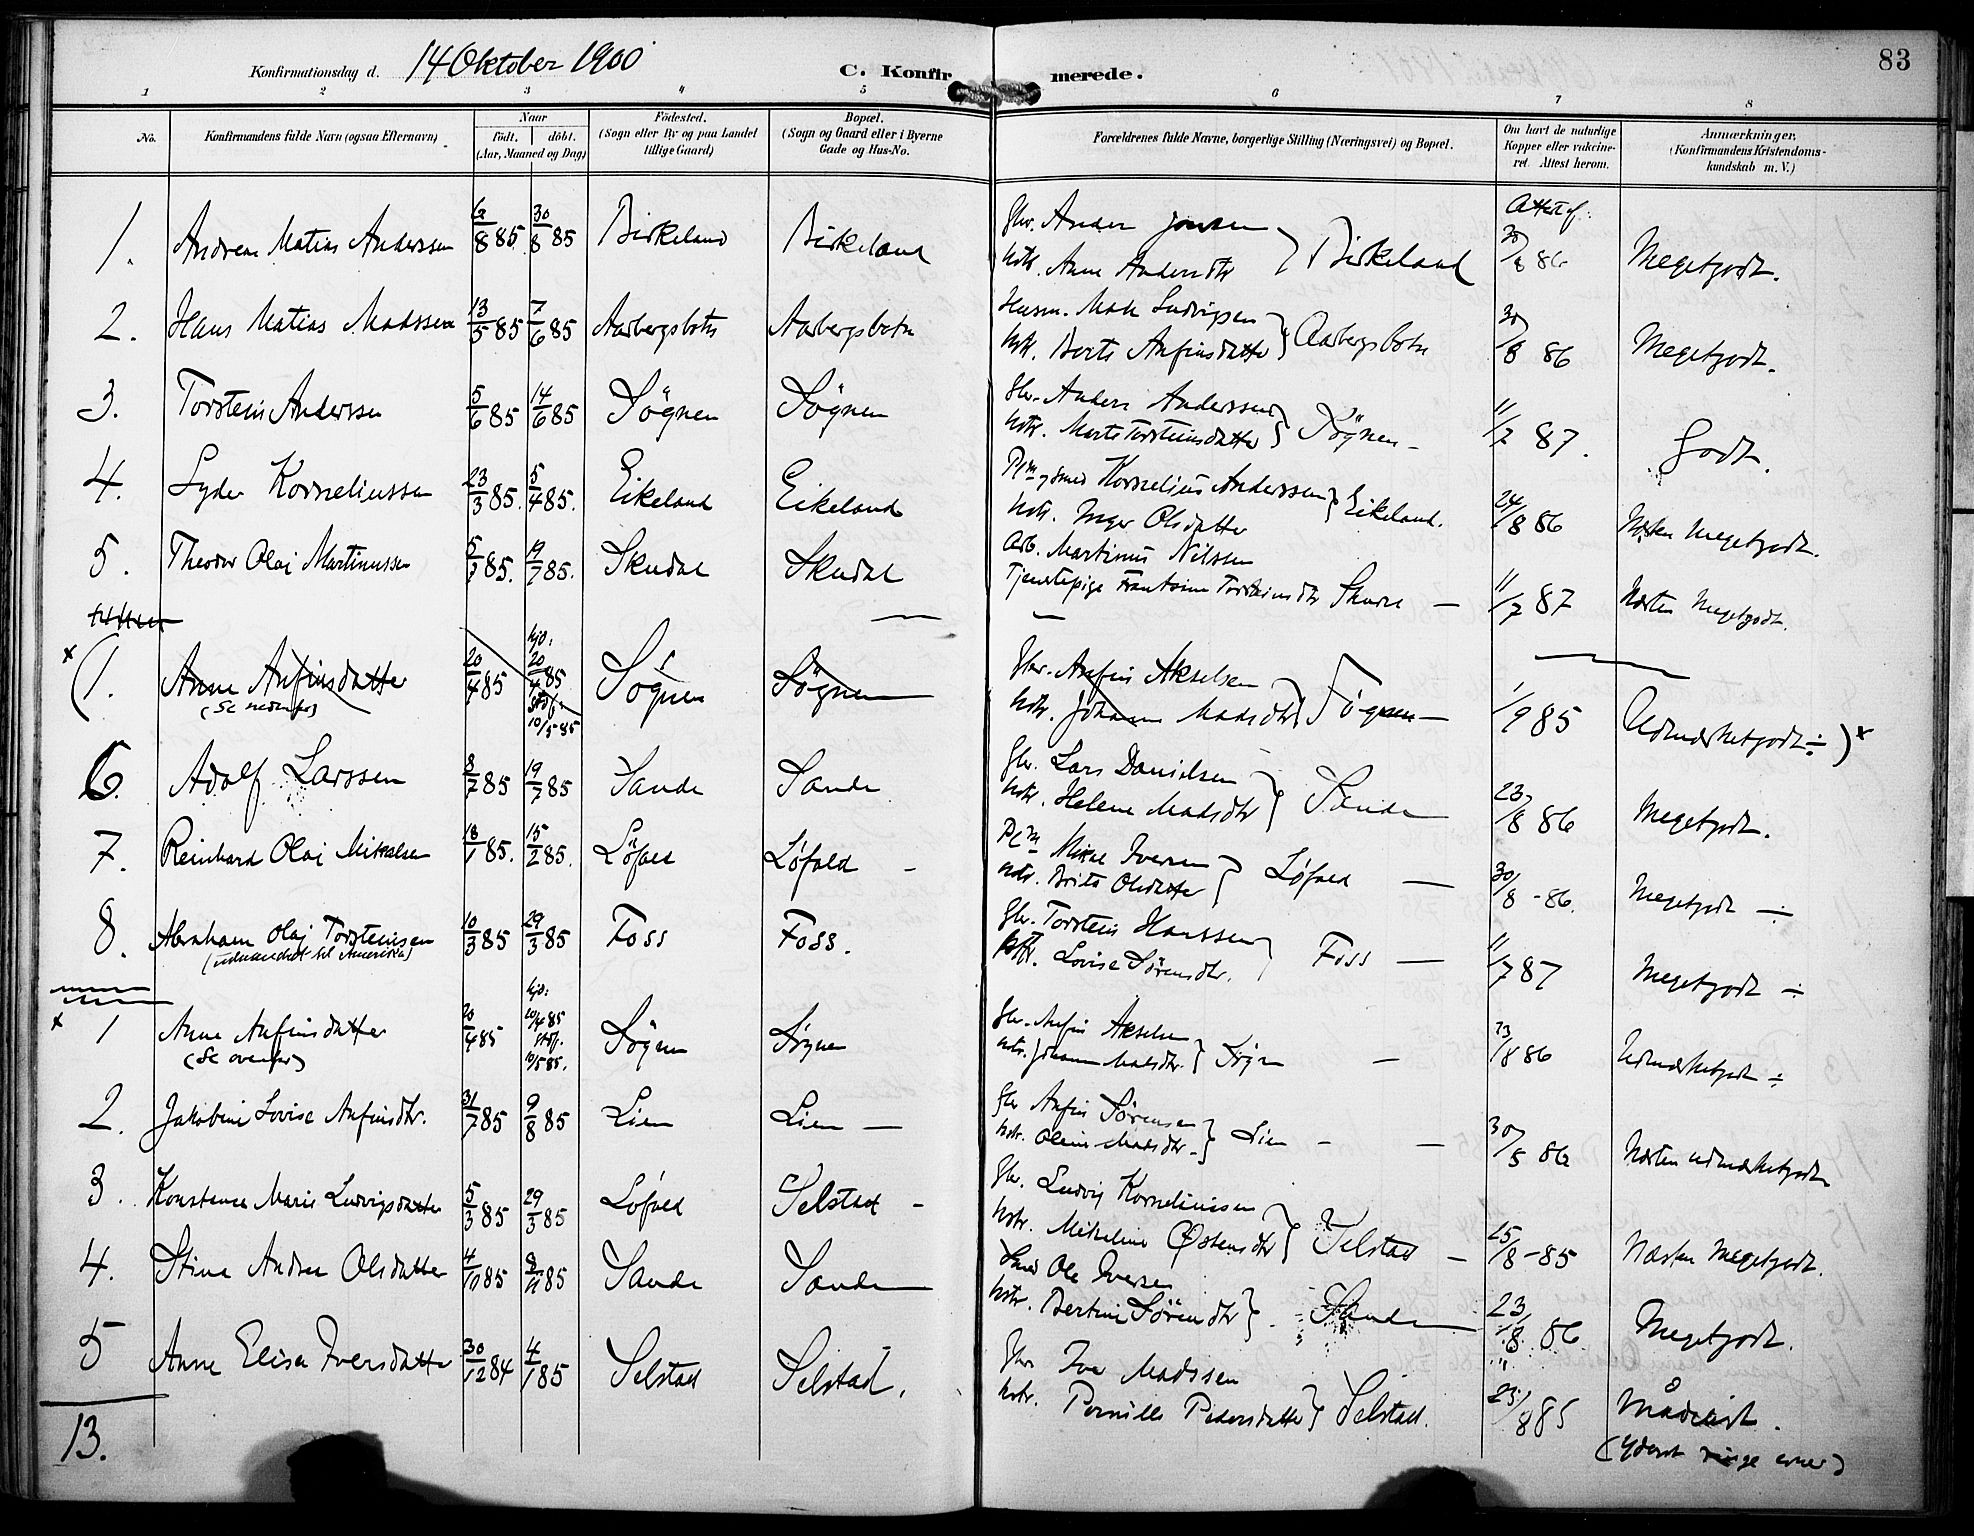 83
Konfirmationsdag d. 14 Oktober 1900 C. Konfirmerede.
1 2 3 4 5 6 7 8
No. Konfirmandens fulde Navn (ogsaa Efternavn) Naar født. døbt. (Aar, Maaned og Dag) Fødested. (Sogn eller By og paa Landet tillige Gaard) Bopæl. (Sogn og Gaard eller i Byerne Gade og Hus-No. Forældrenes fulde Navne, borgerlige Stilling (Næringsvei) og Bopæl. Om havt de naturlige Kopper eller vakcineret. Attest herom. Anmærkninger. (Konfirmandens Kristendomskundskab m. V.)
Attest af:
1. Andreas Matias Anderssen 85 30/8 85 Birkeland Birkeland Gbr. Anders Jonsen
Hstr. Anne Andersdtr } Birkeland 30/8 86 Megetgodt.
2. Hans Matias Madssen 13/5 85 7/6 85 Aarbergsbotn Aarbergsbotn Husm. Mads Ludvigsen
Hstr. Berte Anfinsdatter } Aarbergsbotn 30/8 86 Megetgodt.
3. Torstein Anderssen 5/6 85 14/6 85 Søgnen Søgnen Gbr. Anders Anderssen
Hstr. Marte Torsteinsdatter } Søgnen – 11/7 87. Godt.
4. Lyder Korneliussen 23/3 85. 5/4 85. Eikeland Eikeland Plm og smed Kornelius Anderssen
Hstr. Inger Olsdatter } Eikeland. 24/8 86 Næsten Megetgodt.
5. Theodor Olai Martinussen 5/7 85. 19/7 85. Skudal Skudal Arb. Martinus Nilssen
Tjenestepige Frantsina Torsteinsdtr Skudal – 11/7 87 Næsten Megetgodt.
x (1. Anne Anfinsdatter 20/4 85 hjd: 20/4 85 Søgnen Søgnen Gbr. Anfin Akselsen
(Se nedenfor) stadf: 10/5 85 Hstr. Johanna Madsdtr } Søgnen – 1/9 85 Udmærketgodt ÷ ) x
6. Adolf Larssen 8/7 85 19/7 85 Sande Sande Gbr. Lars Danielsen
Hstr. Helene Madsdtr } Sande 23/8 86 Megetgodt.
7. Reinhard Olai Mikalsen 18/1 85. 15/2 85. Løfald Løfald – Plm Mikal Iversen
Hstr. Brita Olsdatter } Løfald – 30/8 -86. Megetgodt ÷
8. Abraham Olai Torsteinsen 10/3 85 29/3 85 Foss Foss. Gbr. Torstein Hanssen
(udvandret til Amerika) Hstr. Lovise Sørensdtr. } Foss – 11/7 87 Megetgodt ÷
x 1 Anne Anfinsdatter 20/4 85 hjd: 20/4 85 Søgnen Søgnen Gbr. Anfin Akselsen
(Se ovenfor) stadf. 10/5 85. Hstr. Johanna Madsdtr. } Søgn – 23/8 86 Udmærketgodt ÷
2. Jakobine Lovise Anfinsdtr. 31/7 85 9/8 85 Lien Lien – Gbr Anfin Sørensen
Hstr. Oline Madsdtr. } Lien – – 30/8 86 Næsten udmærketgodt
3. Konstance Marie Ludvigsdatter 5/3 85 29/3 85 Løfald Selstad – Gbr. Ludvig Korneliussen
Hstr. Mikeline Østensdtr } Selstad – 25/8 -85 Næsten Megetgodt.
4. Stina Andrea Olsdatter 4/10 85 8/11 85 Sande Sande Smed Ole Iversen
Hstr. Bertine Sørensdtr } Sande 23/8 86 Megetgodt.
5 Anne Elisa Iversdatter 30/12 84 4/1 85 Selstad Selstad. Gbr Iver Madssen
Hstr. Pernille Pedersdatter } Selstad. 25/8 85 Mådeligt.
13. (Yderst ringe evner)